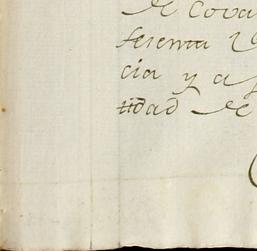 de Cova
sesenta
cia y a
tidad de